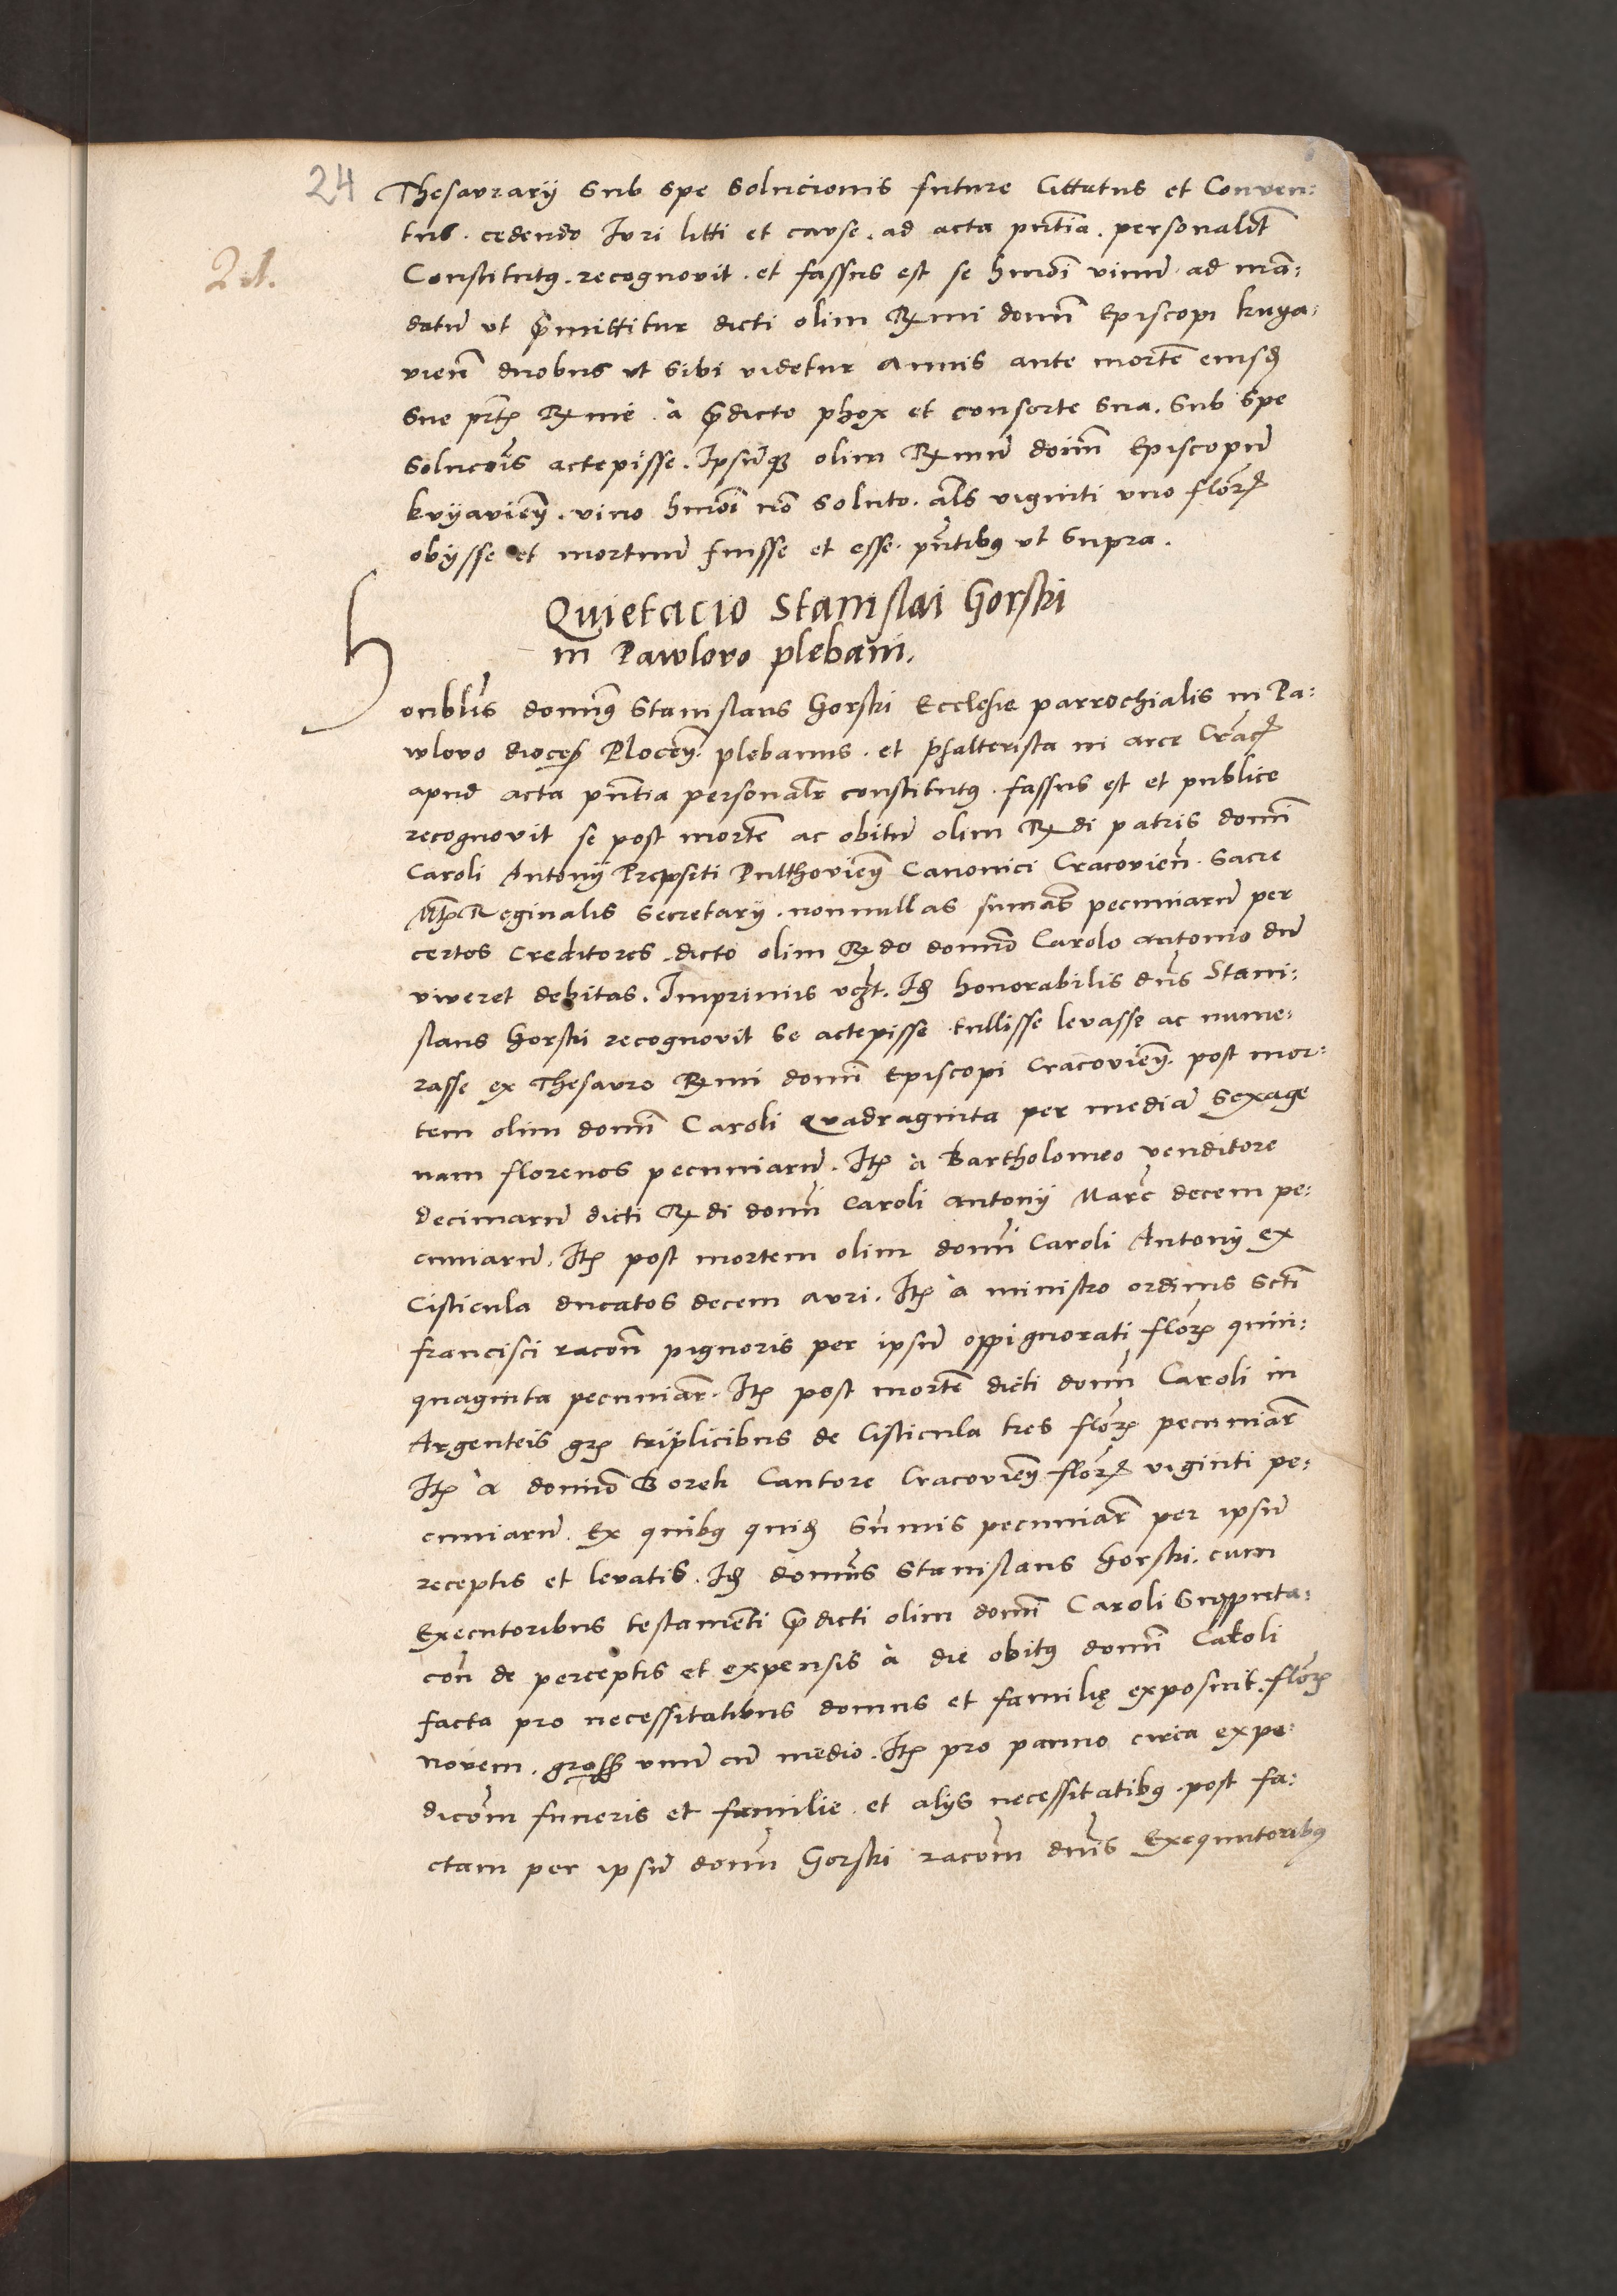 24
Thesaurarij sub spe solucionis future Cittatus et Conven:
21.
tus. cedendo Juri litti et cause. ad acta pñtia. personalit
Constitutus. recognovit. et fassus est se hmõi vinũ ad mã:
datũ ut p̃mittitur dicti olim Rmi domñ Episcopi kuya:
vień duobus ut sibi videtur annis ante mortẽ eiusd
sue prt Rme. à p̃dicto phox et consorte sua. sub spe
solucõis accepisse. Ipsũq olim Rmũ doim̃ Episcopũ
kuyavień. vino hmõi nõ soluto. als viginti uno florz
obijsse et mortuũ fuisse et esse. pñtibus ut supra.
Quietacio Stanislai Gorski
in Pawlovo plebani.
Honblis̃ domns Stanislaus Gorski Ecclesie parrochialis in Pa:
wlovo dioces Plocen. plebanus. et psalterista in arce Crac
apud acta pñtia personalr constitutus. fassus est et publice
recognovit se post mortẽ ac obitũ olim Rdi patris domñ
Caroli Antonij Prepsiti Pulthovień Canonici Cracovień. Sacre
Mtz Reginalis Secretarij. nonnullas sumas pecuniarũ per
certos Creditores. dicto olim Rdo domño Carolo antonio dũ
viveret debitas. Imprimis vz. Id honorabilis dñs Stani:
slaus Gorski recognovit se accepisse tullisse levasse ac nume:
rasse ex Thesauro Rmi domñ Episcopi Cracovień. post mor:
tem olim domñ Caroli Quadraginta per mediã sexage
nam florenos pecuniarũ. Itz à Bartholomeo venditore
decimarũ dicti Rdi domñ Caroli antonij Marc̃ decem pe:
cuniarũ. Itz post mortem olim domñ Caroli Antonij ex
Cisticula ducatos decem auri. Itz à ministro ordinis scti
francisci racoñ pignoris per ipsũ oppignorati florz quin:
quaginta pecuniar. Itz post mortẽ dicti domñ Caroli in
Argenteis grz triplicibus de Cisticula tres florz pecuniar
Itz à domño Borek Cantore Cracovień florz viginti pe:
cuniarũ. Ex quibus quid sum̃is pecuniar per ipsũ
receptis et levatis. Id domñs Stanislaus Gorski. cum
Executoribus testamenti p̃dicti olim domñ Caroli supputa:
coñ de perceptis et expensis à die obitus domñ Caroli
facta pro necessitatibus domus et familię exposuit. florz
novem. gross unũ cũ medio. Itz pro panno circa expe:
dicõm funeris et familie. et alijs necessitatibus. post fa:
ctam per ipsũ domñ Gorski racoñ dñis Exequutoribus